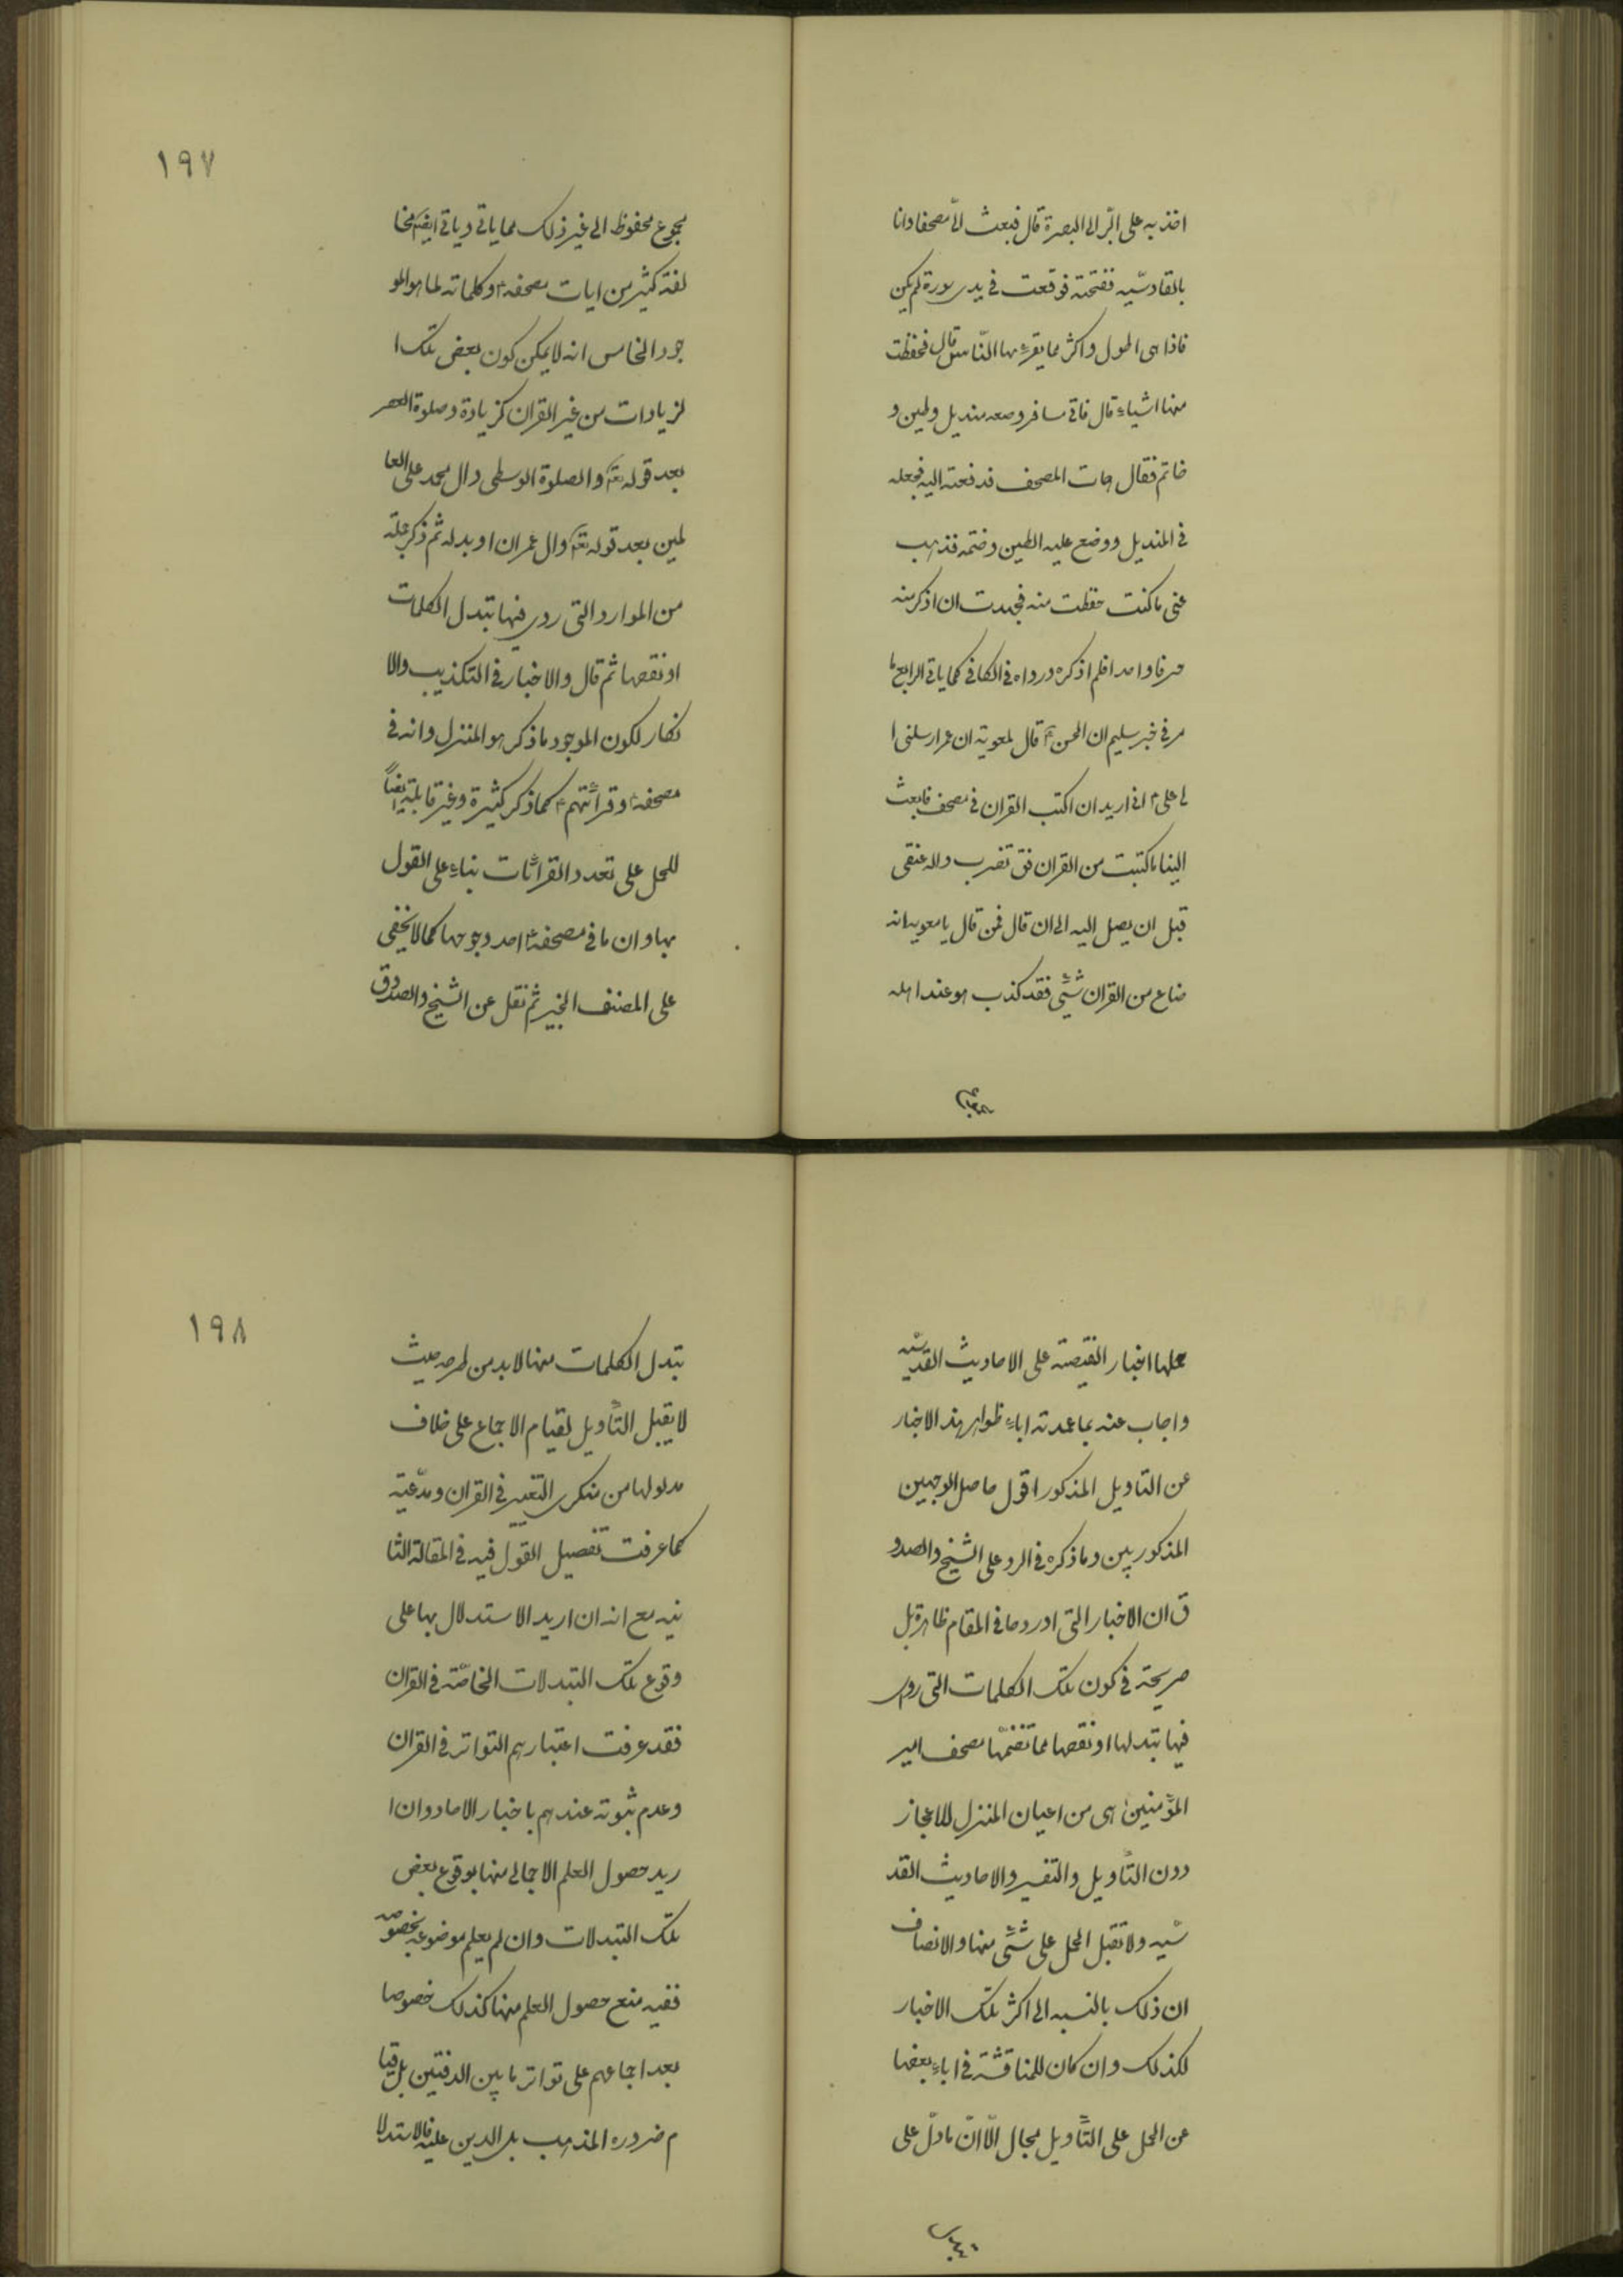 اخذ به على البر الى البصرة قال فبعث الىّ مصحفا وانا
بالقادسيّه ففتحته فوقعت فى يدى سورة لم يكن
فاذا هى اطول واكثر مما يقرء بها النّاس قال فحفظت
منها اشياء قال فاتى مسافر ومعه منديل وطين و
خاتم فقال هات المصحف فدفعته اليه فجعله
فى المنديل ووضع عليه الطين وختمه فذهب
عنى ما كنت حفظت منه فجهدت ان اذكر منه
حرفا واحدا فلم اذكره ورواه فى الكافى كما ياتى الرابع ما
مر فى خبر سليم ان الحسن ع قال لمعوية ان عمر ارسلنى ا
لى على ع انى اريد ان اكتب القران فى مصحف فابعث
الينا ما كتبت من القران فق تضرب والله عنقى
قبل ان يصل اليه الى ان قال فمن قال يا معويه انه
ضاع من القران شئى فقد كذب هو عند اهله
مجموع محفوظ الى غير ذلك مما ياتى وياتى ايضا مخا
لفة كثير من ايات مصحفه ع وكلماته لما هو المو
جود الخامس انه لا يمكن كون بعض تلك ا
لزيادات من غير القران كزيادة وصلوة العصر
بعد قوله تعالى والصلوة الوسطى وال محمد على العا
لمين بعد قوله تعالى وال عمران او بدله ثم ذكر جملة
من الموارد التى روى فيها تبدل الكلمات
او نقصها ثم قال والاخبار فى التكذيب والا
نكار لكون الموجود ما ذكر هو المنزل وانه فى
مصحفه ع وقرائتهم ع كما ذكر كثيرة وغير قابلة ايضاً
للحمل على تعدد القرائات بناء على القول
بها وان ما فى مصحفه ع احد وجوهها كما لا يخفى
على المصنف الخبير ثم نقل عن الشيخ والصدوق
١٩٧
حملها اخبار النقيصة على الاحاديث القدسيّه
واجاب عنه بما عمدته اباء ظواهر هذه الاخبار
عن التاويل المذكور اقول حاصل الوجهين
المذكورين وما ذكره فى الرد على الشيخ والصدو
ق ان الاخبار التى اوردها فى المقام ظاهرة بل
صريحة فى كون تلك الكلمات التى روى
فيها تبدلها او نقصها مما تضمنها مصحف امير
المؤمنين ع هى من اعيان المنزل للاعجاز
دون التأويل والتفسير والاحاديث القد
سّيه ولا تقبل الحمل على شئى منها والانصاف
ان ذلك بالنسبه الى اكثر تلك الاخبار
لكذلك وان كان للمناقشة فى اباء بعضها
عن الحمل على التأويل مجال الّا انّ ما دلّ على
تبدل
تبدل الكلمات منها لابد من طرحه حيث
لا يقبل التأويل لقيام الاجماع على خلاف
مدلولها من منكرى التغيير فى القران ومدّعيه
كما عرفت تفصيل القول فيه فى المقالة الثا
نيه مع انه ان اريد الاستدلال بها على
وقوع تلك التبدلات الخاصّة فى القران
فقد عرفت اعتبارهم التواتر فى القران
وعدم ثبوته عندهم باخبار الاحاد وان ا
ريد حصول العلم الاجمالى منها بوقوع بعض
تلك التبدلات وان لم يعلم موضوعه بخصوصه
ففيه منع حصول العلم منها كذلك خصوصا
بعد اجماعهم على تواتر ما بين الدفتين بل قيا
م ضروره المذهب بل الدين عليه فالاستدلا
١٩٨